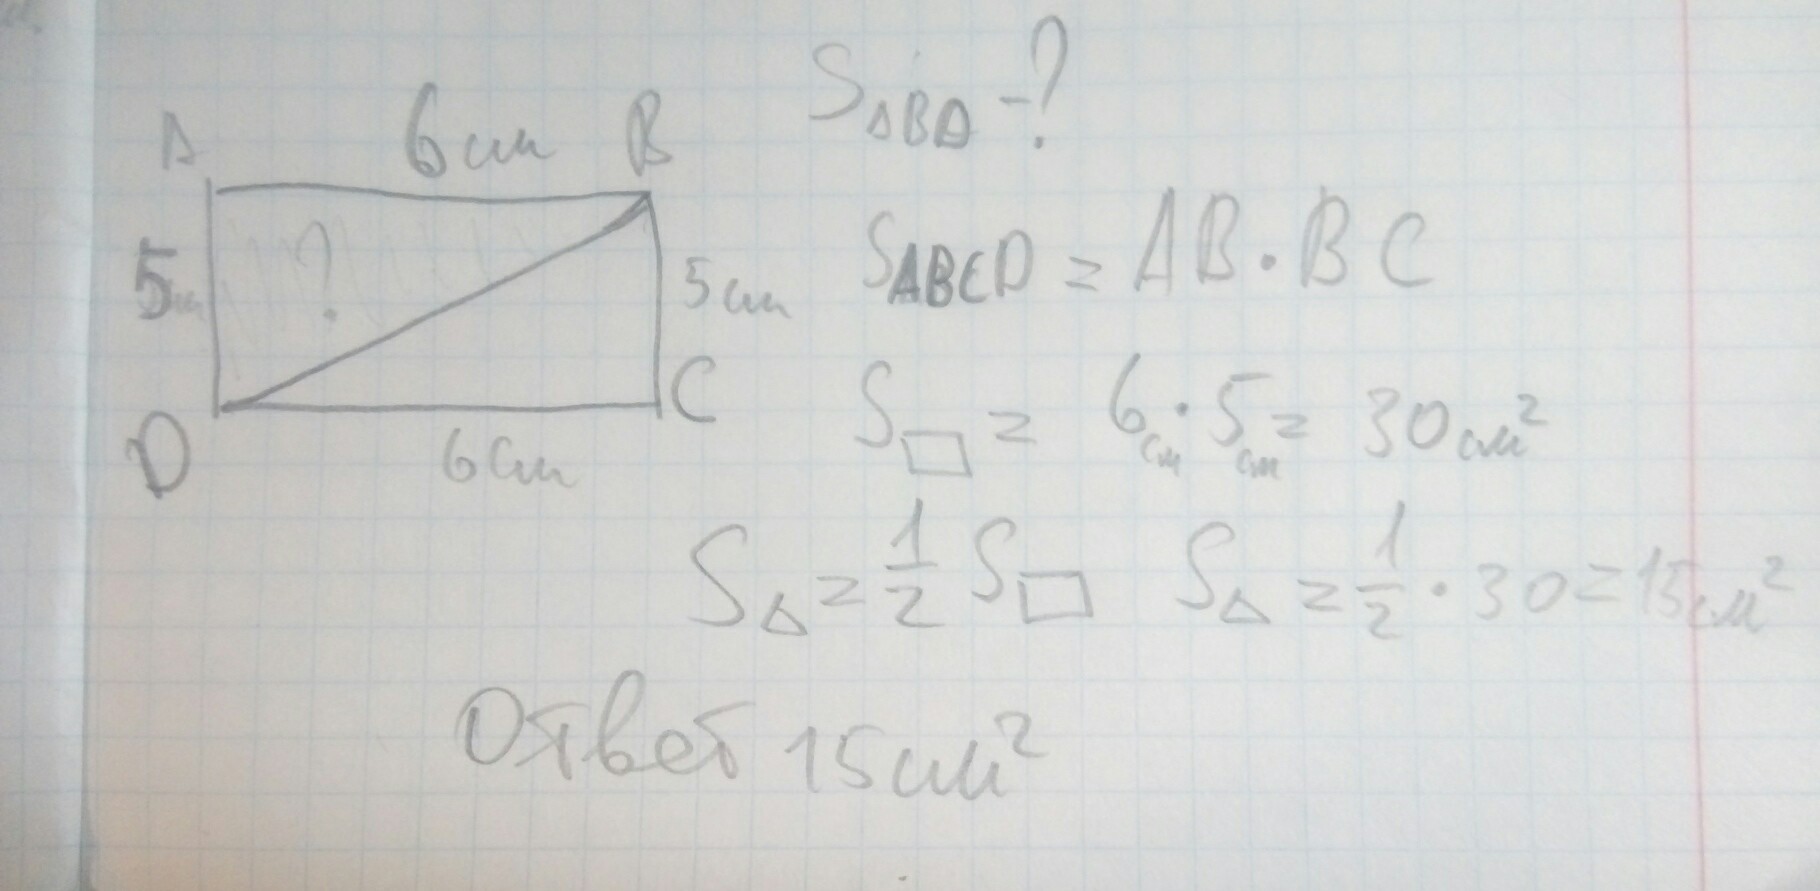 A 6 см B S ABD - ?
?
5 см 5 см S ABCD = AB · BC
D 6 см C S □ = 6 см · 5 см = 30 см²
S △ = 1/2 S □ S △ = 1/2 · 30 = 15 см²
Ответ 15 см²